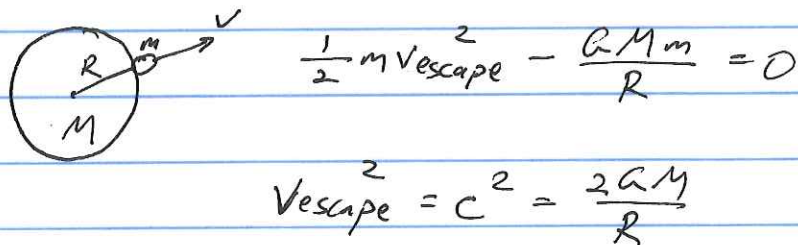 R m V
M
1/2 m Vescape² - GMm/R = 0
Vescape² = c² = 2GM/R